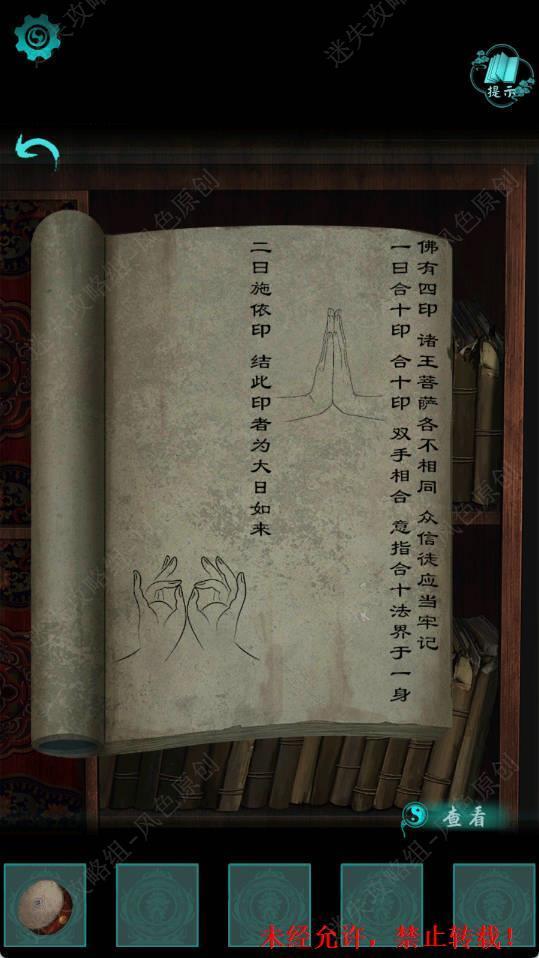 提示
佛有四印 诸王菩萨各不相同 众信徒应当牢记
一曰合十印 合十印 双手相合 意指合十法界于一身
二曰施依印 结此印者为大日如来
查看
迷失攻略组-风色原创
未经允许，禁止转载！